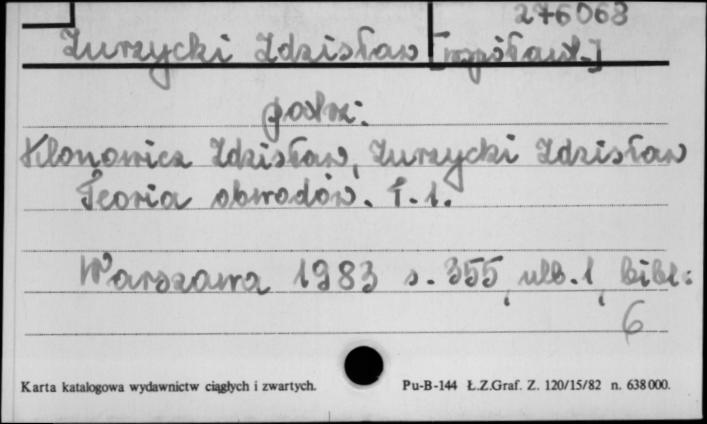 276068
Zurzycki Zdzisław [współaut.]
patrz:
Klonowicz Zdzisław, Zurzycki Zdzisław
Teoria obwodów. T. 1.
Warszawa 1983 s. 355, ulb. 1, bibl:
6
Karta katalogowa wydawnictw ciągłych i zwartych. Pu-B-144 Ł.Z.Graf. Z. 120/15/82 n. 638000.